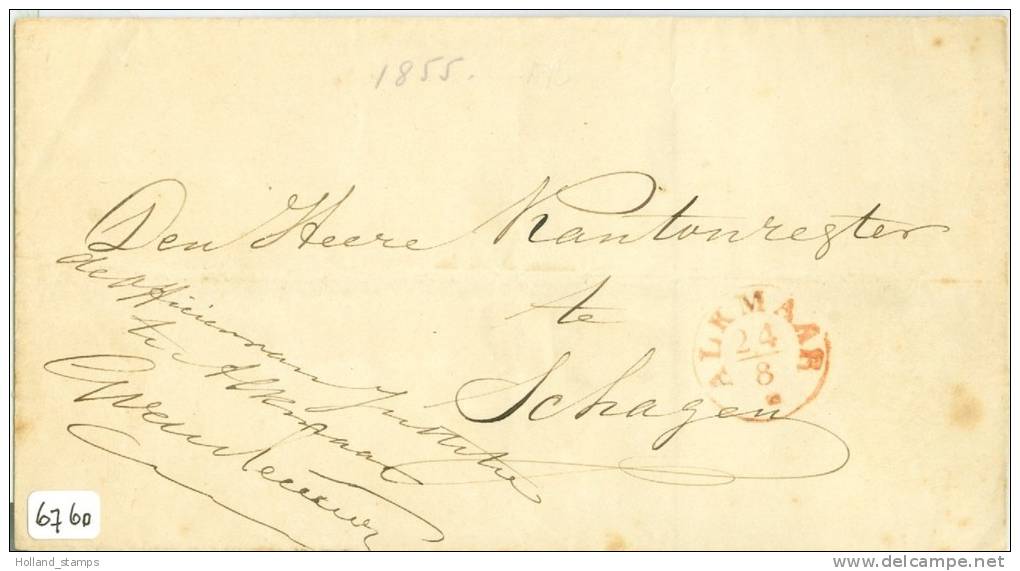 1855.
Den Heere Kantonregter
te
Schagen
de Officier van Justitie
te Alkmaar
ALKMAAR
24
8
6760
Holland_stamps
www.delcampe.net